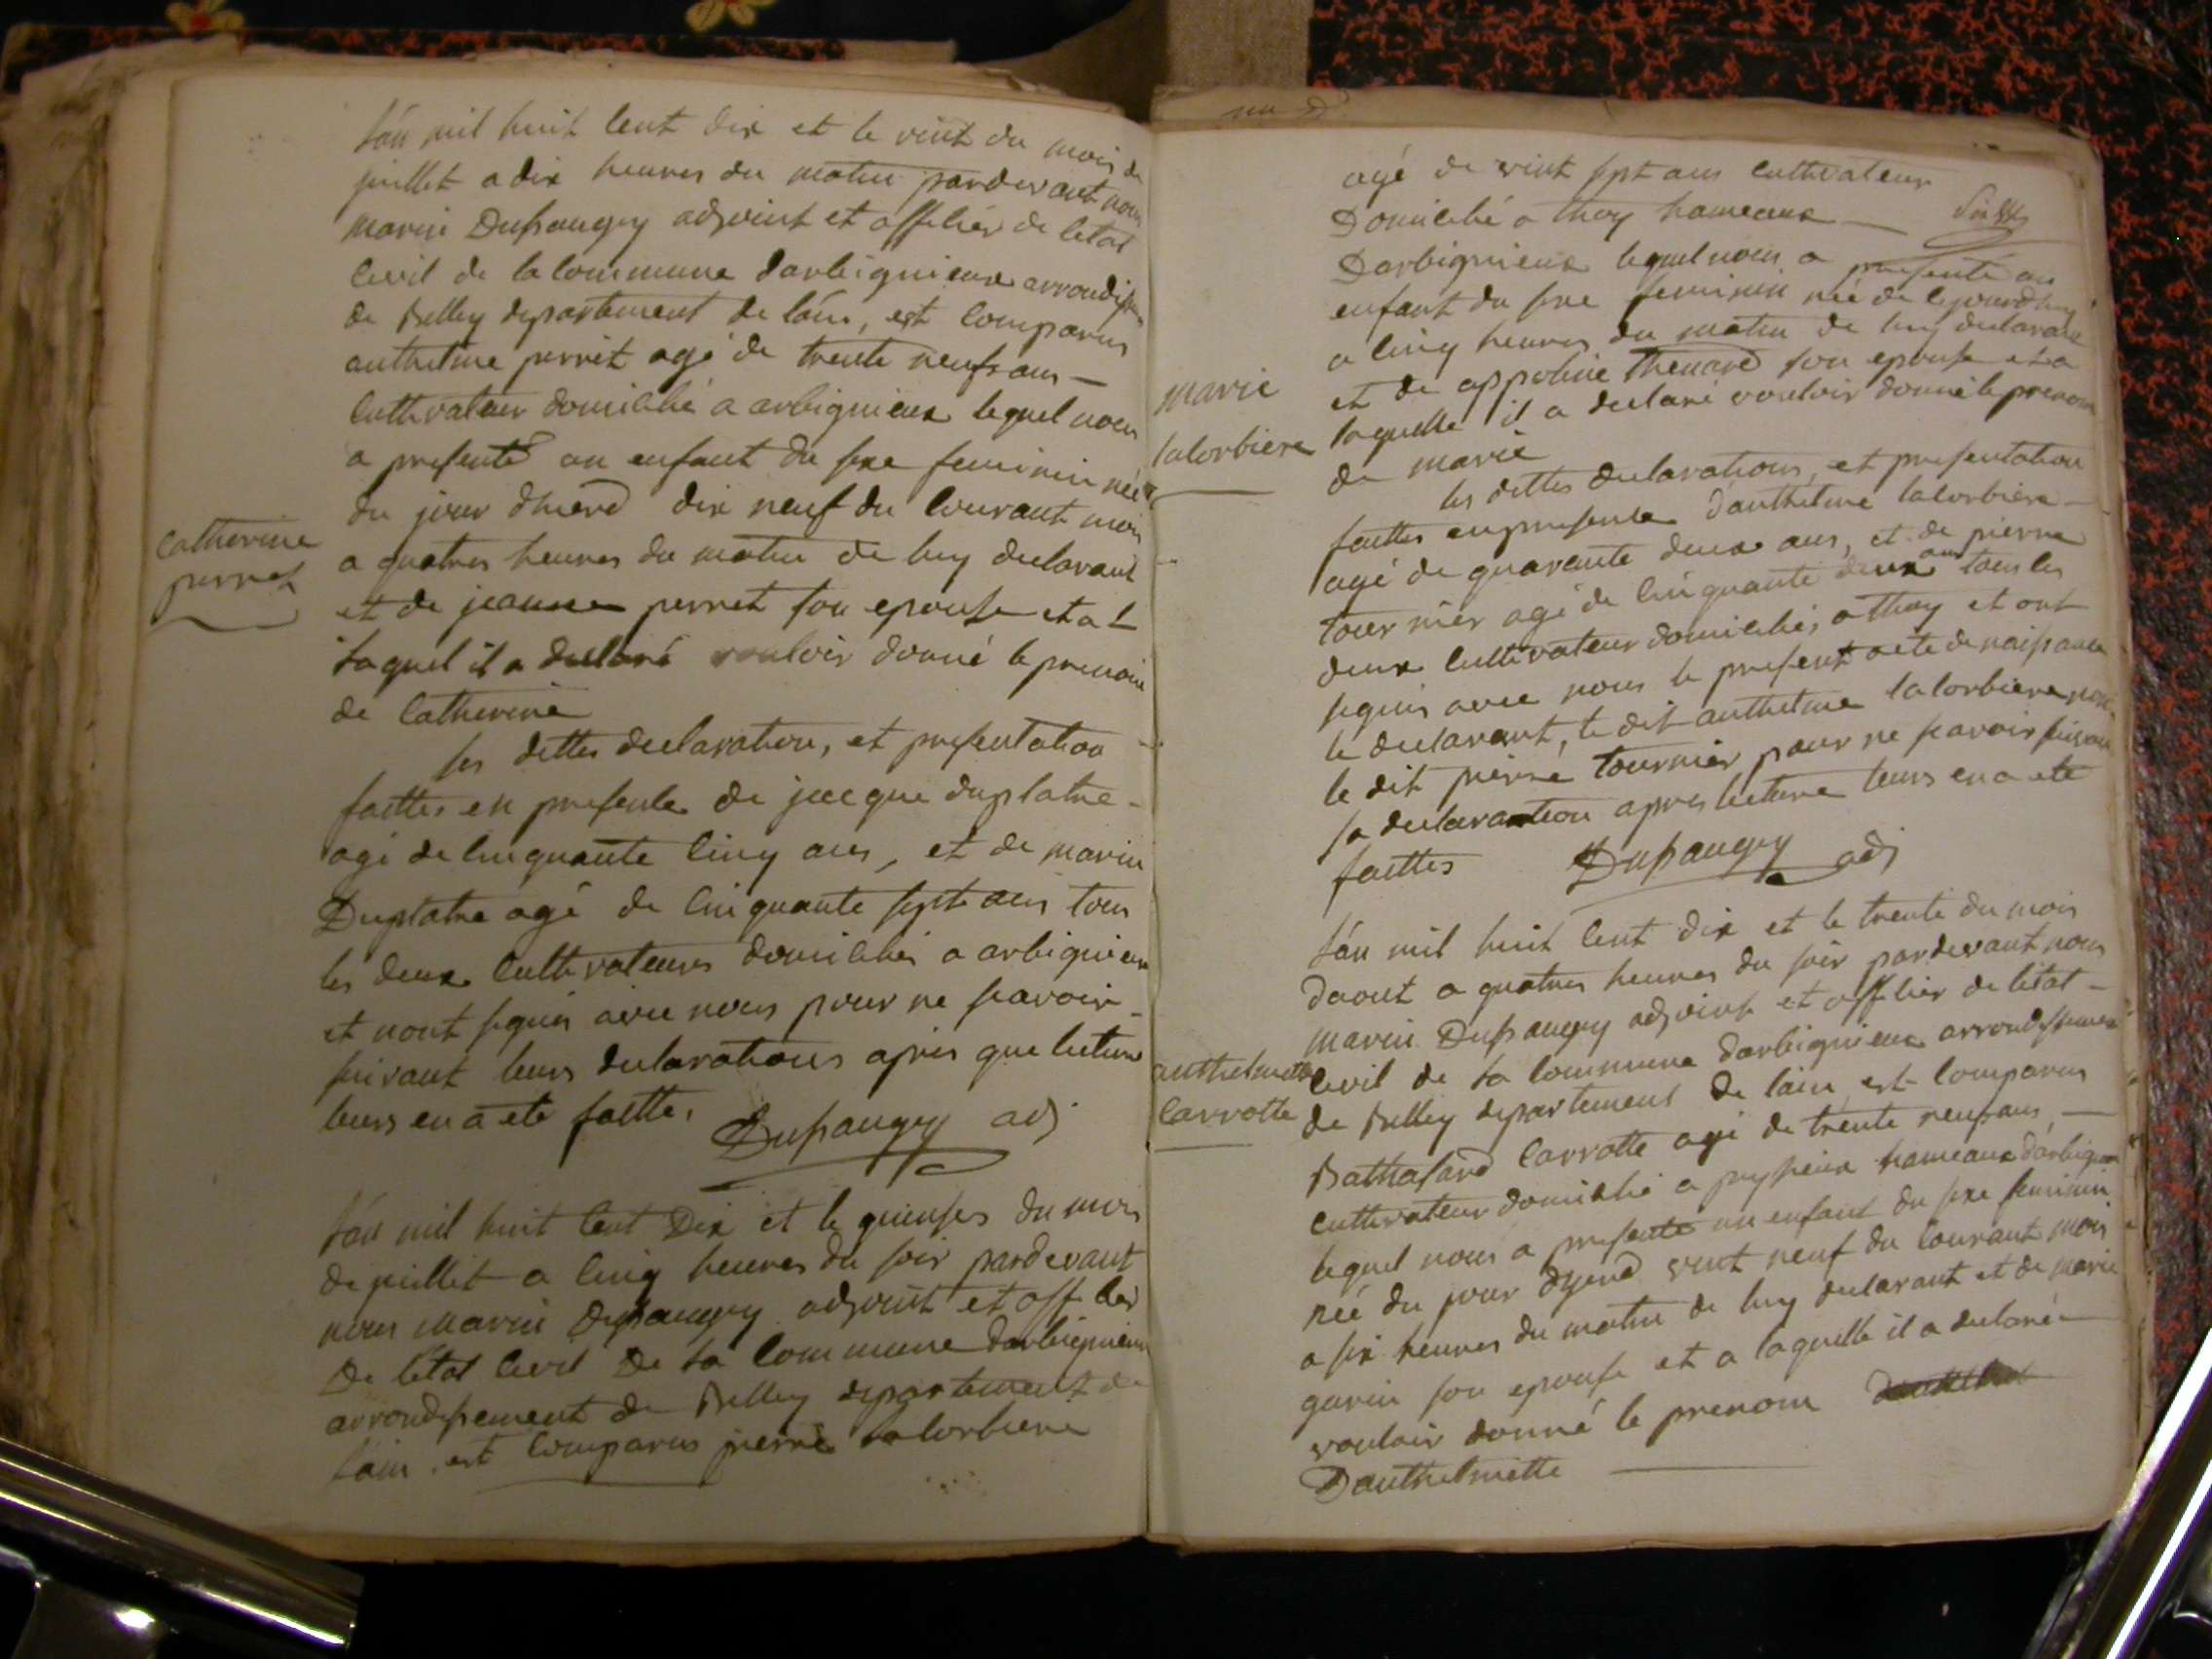 Lán mil huit Cent dix et le vint du mois de
juillet a dix heures du matin pardevant nous
marin Dupaugey adjoint et officier de letat
Civil de la Commune darbignieux
de Belley departement de láin, est Comparus
anthelme perret agé de trente neuf ans —
Cultivateur domicilié a arbignieux lequel nous
a presenté un enfant du sexe feminin née
du jour dhierd dix neuf du Courant mois
a quatres heures du matin de luy declarant
et de jeanne perret son epouse et a
laquel il a declaré vouloir donné le prenom
de Catherine
Catherine
perret
les dittes declaration, et presentation
faittes en presence de jacque duplatre
agé de Cinquante Cinq ans, et de marin
Duplatre agé de Cinquante sept ans tous
les deux Cultivateurs domiciliés a arbignieux
et nont signés avec nous pour ne scavoir
suivant leurs declarations apres que lecture
leurs en a ete faitte. Dupaugey adj
Lán mil huit Cent Dix et le du mois
de juillet a Cinq heures du soir pardevant
nous marin Dupaugey adjoint et officier
De letat Civil De la Commune darbignieux
arrondissement de Belley departement de
láin est Comparus pierre lalorbiere
agé de vint sept ans Cultivateur
Domicilié a thoy hameaux —
Darbignieux lequel nous a presenté un
enfant du sexe feminin née de cejourdhuy
a Cinq heures du matin de luy declarant
et de appoline Thenard son epouse et a
laquelle il a declaré vouloir donné le prenom
de marie
marie
lalorbiere
les dittes declarations, et presentation
faittes en presence dánthelme lalorbiere —
agé de quarante deux ans, et de pierre
tournier agé de Cinquante deux ans tous les
deux Cultivateur domiciliés a thoy et ont
signés avec nous le present acte de naissance
le declarant, le dit anthelme lalorbiere non
le dit pierre tournier pour ne scavoir suivant
sa declaration apres lecture leurs en a ete
faittes Dupaugey adj
Lán mil huit Cent dix et le trente du mois
daout a quatres heures du soir pardevant nous
marin Dupaugey adjoint et officier de letat —
Civil de la Commune darbignieux arrondissement
de Belley departement de láin est Comparus
Bathalard Carrotte agé de trente neuf ans —
Cultivateur domicilié a peyzieux hameaux dárbignieux
lequel nous a presenté un enfant du sexe feminin
née du jour dyerd vint neuf du Courant mois
a six heures du matin de luy declarant et de marie
garin son epouse et a laquelle il a declaré —
vouloir donné le prenom
Danthelmette
anthelmette
Carrotte